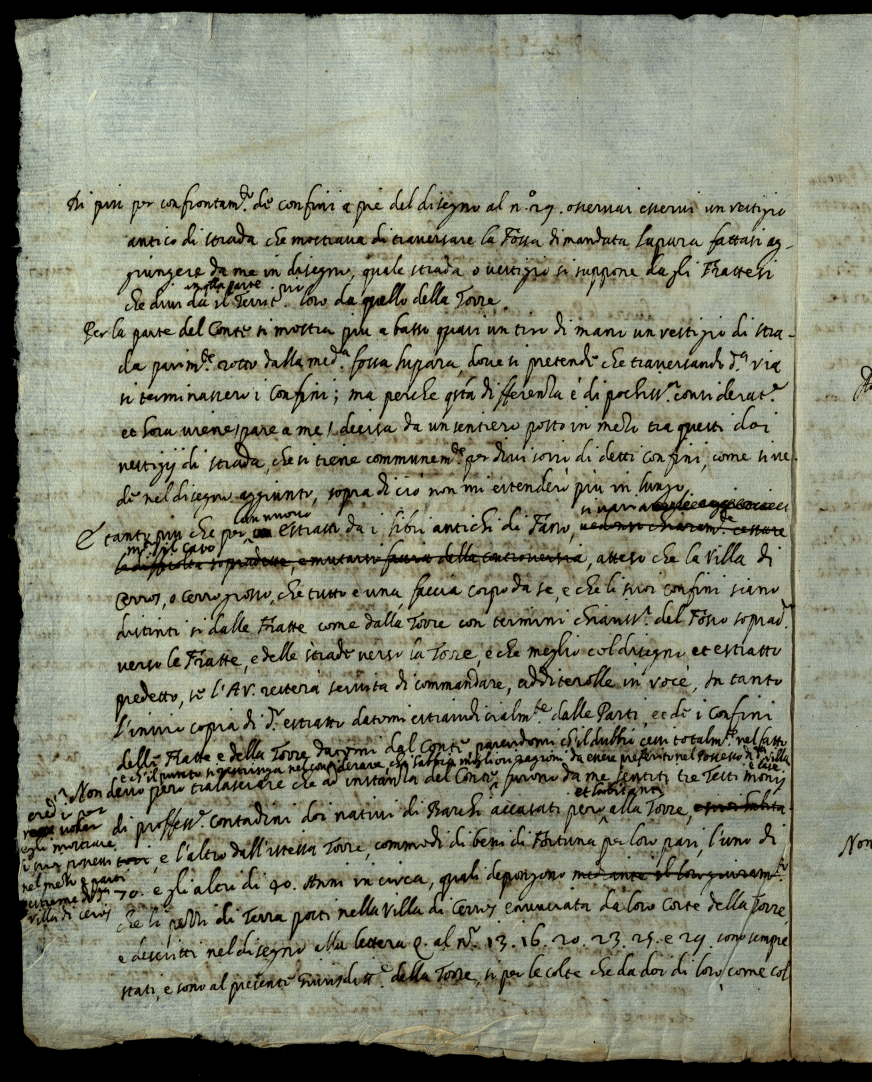 Di più per confrontam.to de confini a piè del disegno al n.o 29. osservai esservi un vestigio
antico di strada che mostrava di traversare la Fossa dimandata Lupara fattasi ag-
giungere da me in disegno, quale strada o vestigio si suppone da gli Frattesi
in q.lla parte più
che divida il Territ.o loro da quello della Torre
Per la parte del Conte si mostra più a basso quasi un tiro di mano un vestigio di stra-
da parim.te rotto dalla med.a fossa lupara, dove si pretende che traversando d.a via
si terminassero i Confini; ma perche q.sta differenza è di pochiss.a considerat.e
et hora viene, pare a me, decisa da un sentiero posto in mezo tra questi doi
vestigij di strada, che si tiene communem.te per divisorii di detti confini, come si ve-
de nel disegno aggiunto, sopra di ciò non mi estenderò più in lungo,
È tanto più che per un estratto da i libri antichi di Fano, vedonsi chiaram.te cessare
la difficoltà sopradetta, e mutarsi faccia della controversia, atteso che la Villa di
Cerros, o Cerro grosso, che tutto è una, faccia corpo da se, e che li suoi confini siano
distinti sì dalle Fratte come dalla Torre con termini chiariss.i del Fosso soprad.o
verso le Fratte, e delle strade verso la Torre, e che meglio col disegno et estratto
predetto, se l'A.V. resterà servita di commandare, additerolle in voce, In tanto
l'invio copia di d.o estratto datomi estraiudicialm.te dalle Parti, et de i Confini
delle Fratte e della Torre datomi dal Conte, parendomi ch'il dubbio cessi totalm.te nel fatto
e ch'il punto si restringa nel considerare chi habbia migliori ragioni da essere preferito nel Possesso di d.a villa
Non devo però tralasciare che ad instanza del Conte furono da me sentiti tre Testimonij
et habitanti
di profess.e contadini doi nativi di Barchi accasati però alla Torre,
e l'altro dall'istessa Torre, commodi di beni di Fortuna per loro pari, l'uno di
70. e gli altri di 40. Anni in circa, quali depongono mediante il loro giuram.to
che li pezzi di Terra posti nella Villa di Cerros, enunciata da loro Corte della Torre,
e descritti nel disegno alla lettera Q. al n.o 13. 16. 20. 23. 25. e 29. sono sempre
stati, e sono al presente Giurisditt.e della Torre, sì per le colte che da doi di loro, come col
villa di Cerros
Non